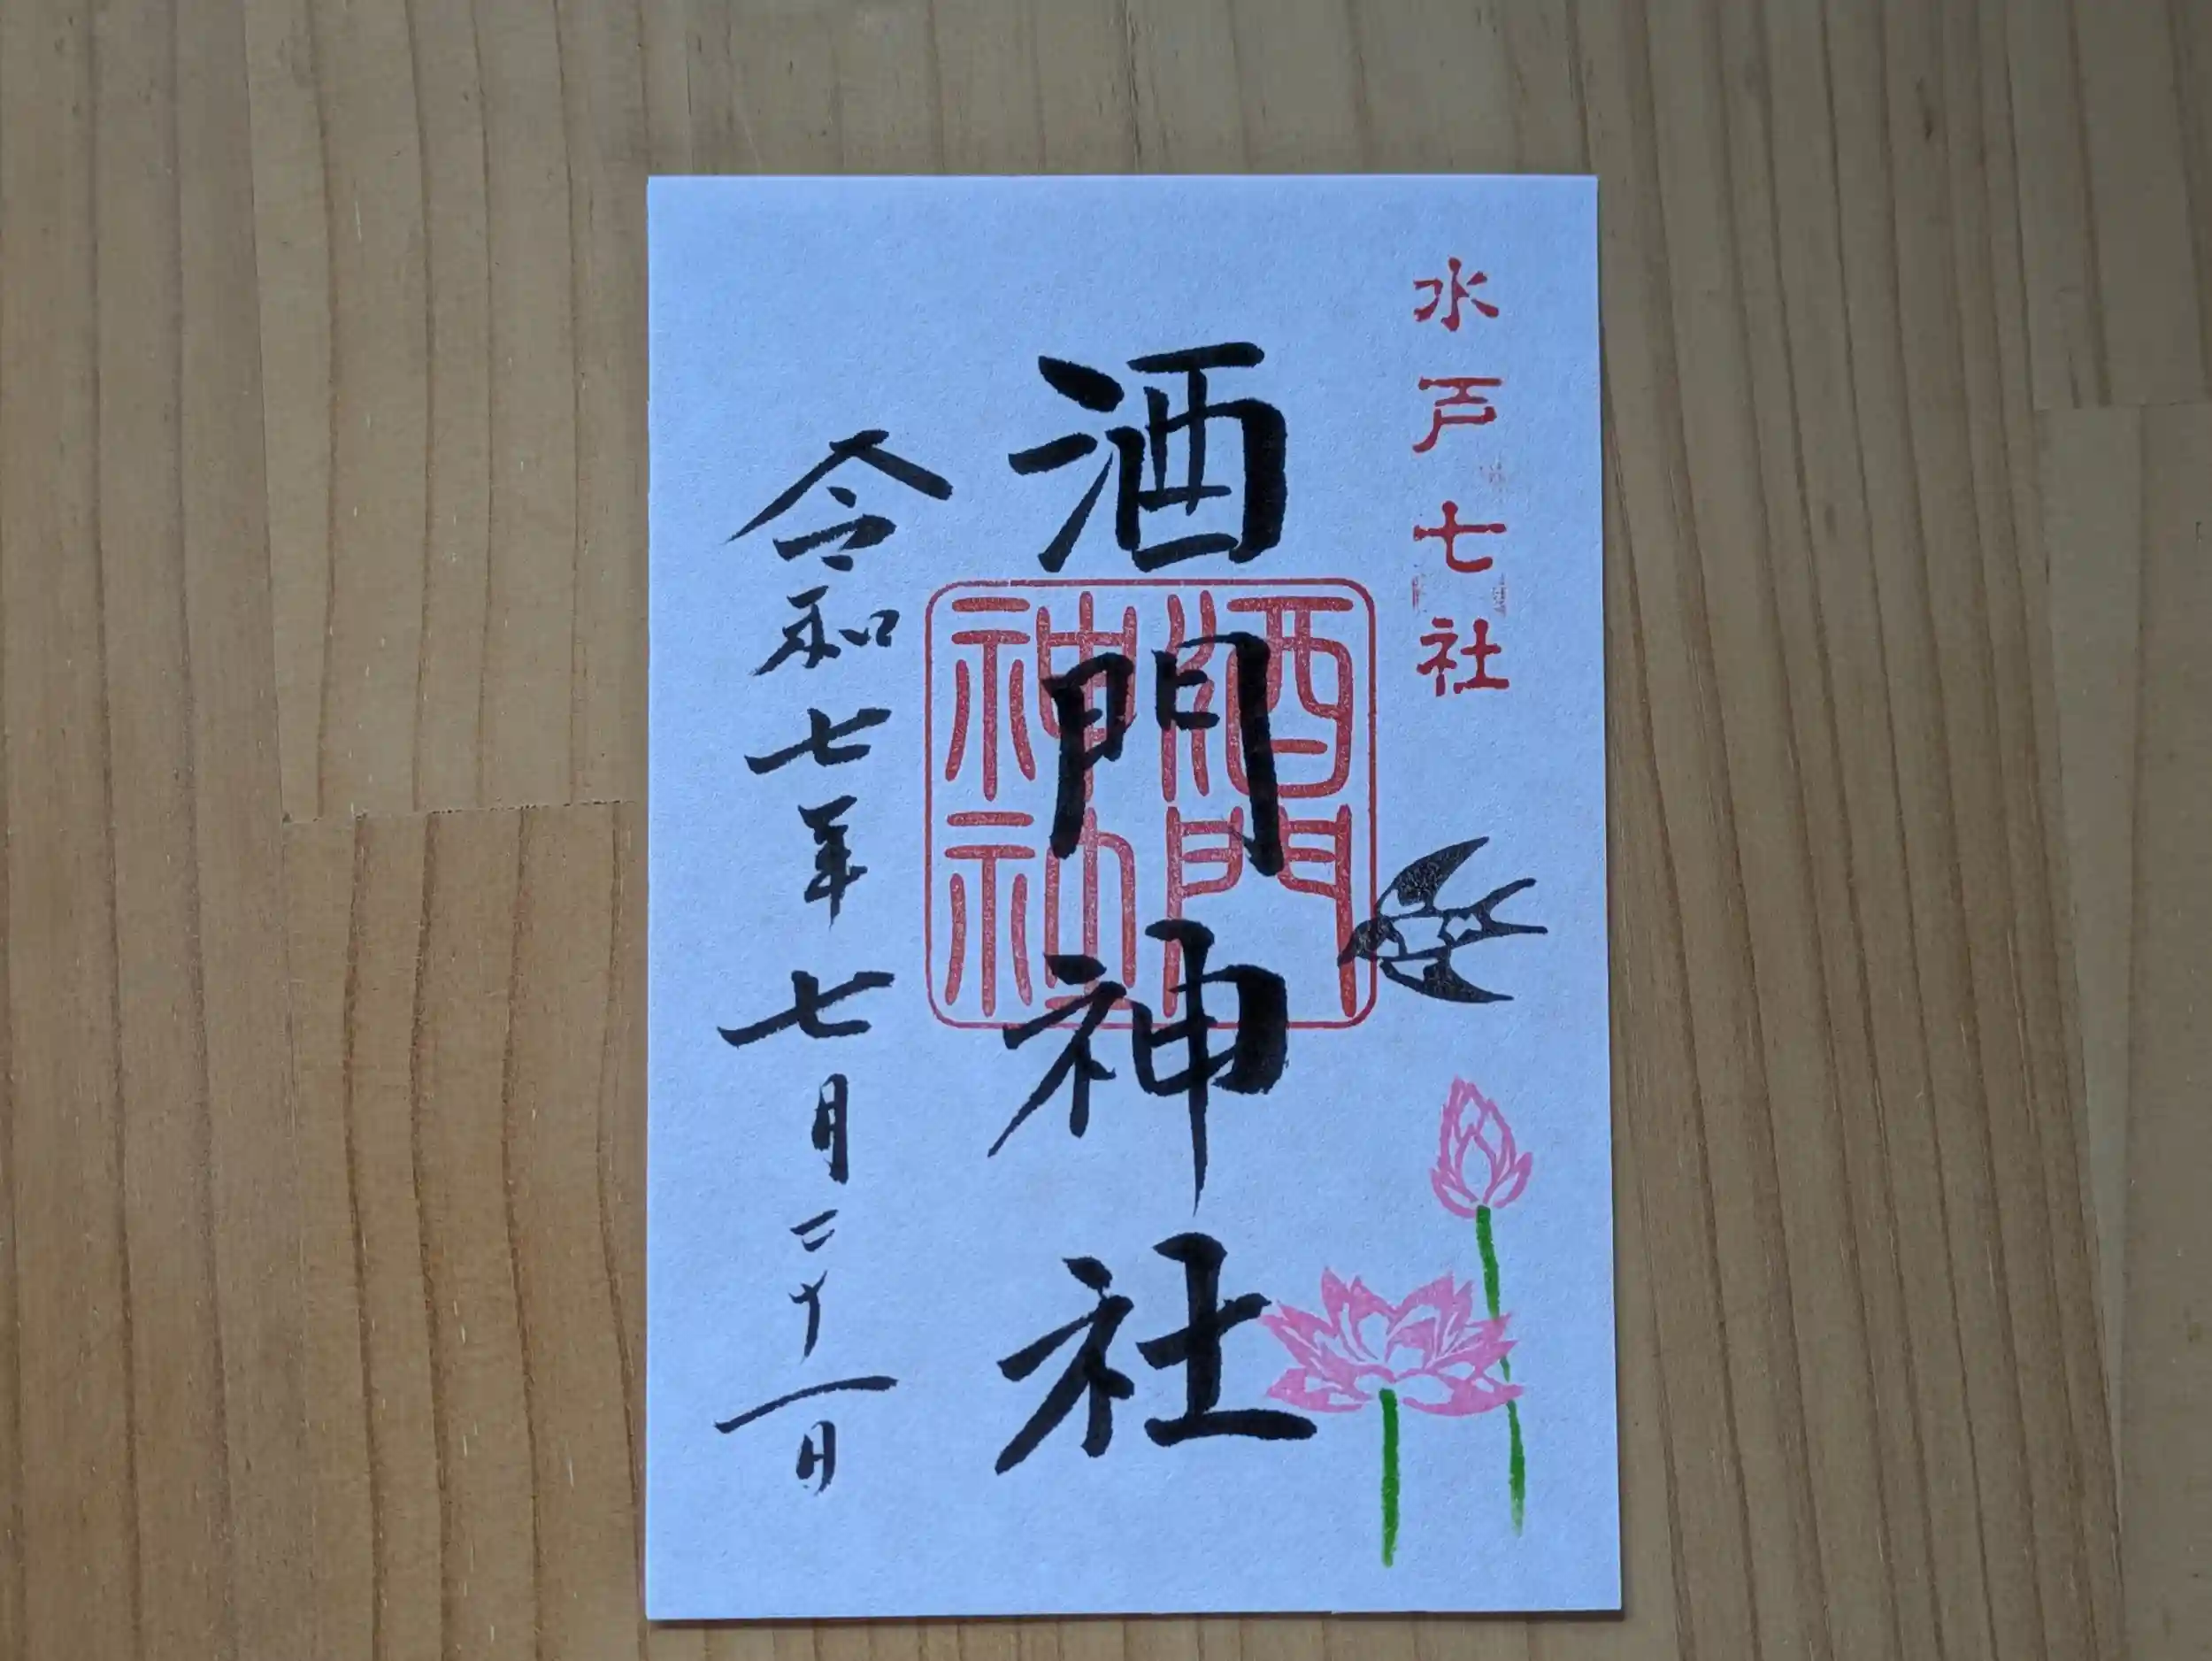 水戸七社
酒門神社
酒門神社
令和七年七月二十一日